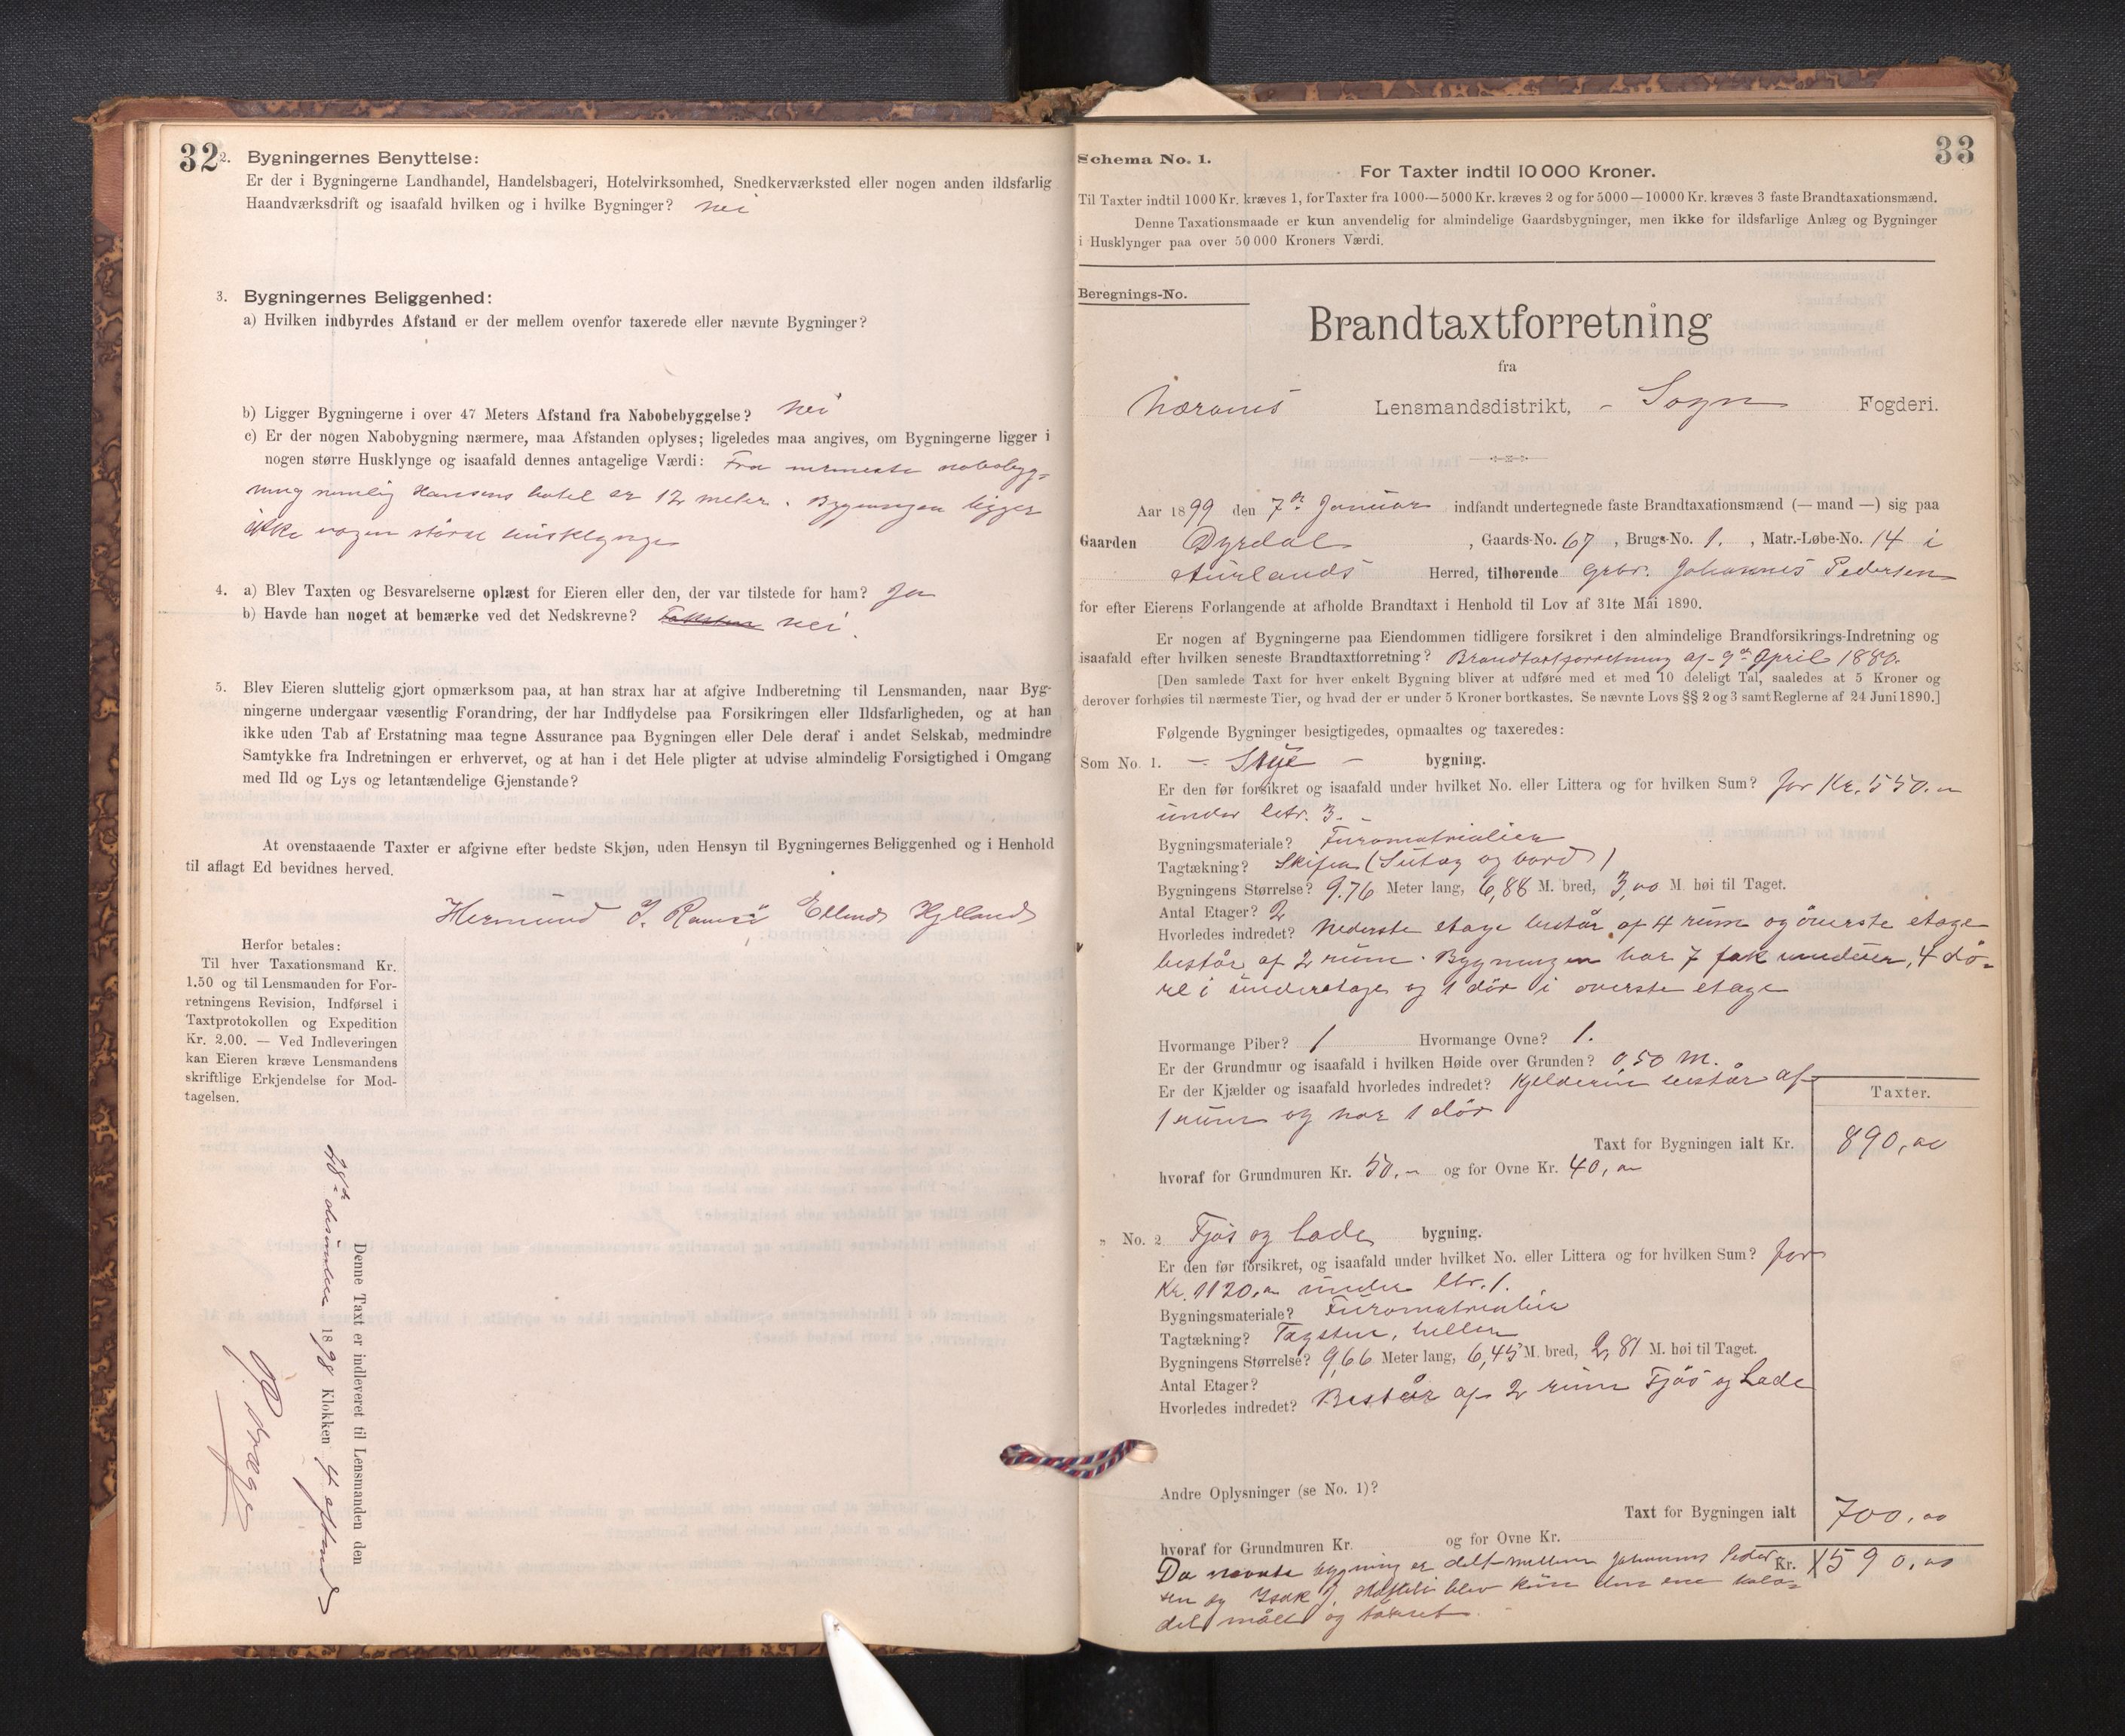 32
2. Bygningernes Benyttelse:
Er der i Bygningerne Landhandel, Handelsbageri, Hotelvirksomhed, Snedkerværksted eller nogen anden ildsfarlig
Haandværksdrift og isaafald hvilken og i hvilke Bygninger? nei
3. Bygningernes Beliggenhed:
a) Hvilken indbyrdes Afstand er der mellem ovenfor taxerede eller nævnte Bygninger?
b) Ligger Bygningerne i over 47 Meters Afstand fra Nabobebyggelse? Nei
c) Er der nogen Nabobygning nærmere, maa Afstanden oplyses; ligeledes maa angives, om Bygningerne ligger i
nogen større Husklynge og isaafald dennes antagelige Værdi: Fra nærmeste nabobyg-
ning nemlig Hansens hotel er 12 meter. Bygningen ligger
ikke nogen större husklynge
4. a) Blev Taxten og Besvarelserne oplæst for Eieren eller den, der var tilstede for ham? Ja
b) Havde han noget at bemærke ved det Nedskrevne? nei.
5. Blev Eieren sluttelig gjort opmærksom paa, at han strax har at afgive Indberetning til Lensmanden, naar Byg-
ningerne undergaar væsentlig Forandring, der har Indflydelse paa Forsikringen eller Ildsfarligheden, og at han
ikke uden Tab af Erstatning maa tegne Assurance paa Bygningen eller Dele deraf i andet Selskab, medmindre
Samtykke fra Indretningen er erhvervet, og at han i det Hele pligter at udvise almindelig Forsigtighed i Omgang
med Ild og Lys og letantændelige Gjenstande?
At ovenstaaende Taxter er afgivne efter bedste Skjøn, uden Hensyn til Bygningernes Beliggenhed og i Henhold
til aflagt Ed bevidnes herved.
Hermund J. Ramsö Ellend Hjelland
Herfor betales:
Til hver Taxationsmand Kr.
1.50 og til Lensmanden for For-
retningens Revision, Indførsel i
Taxtprotokollen og Expedition
Kr. 2.00. — Ved Indleveringen
kan Eieren kræve Lensmandens
skriftlige Erkjendelse for Mod-
tagelsen.
Denne Taxt er indleveret til Lensmanden den
28de desember 1898 Klokken 4 eftmd
33
Schema No. 1.
For Taxter indtil 10 000 Kroner.
Til Taxter indtil 1000 Kr. kræves 1, for Taxter fra 1000—5000 Kr. kræves 2 og for 5000—10000 Kr. kræves 3 faste Brandtaxationsmænd.
Denne Taxationsmaade er kun anvendelig for almindelige Gaardsbygninger, men ikke for ildsfarlige Anlæg og Bygninger
i Husklynger paa over 50 000 Kroners Værdi.
Beregnings-No.
Brandtaxtforretning
fra
Lensmandsdistrikt, - Sogn Fogderi.
Aar 1899 den 7de Januar indfandt undertegnede faste Brandtaxationsmænd (— mand —) sig paa
Gaarden Dyrdal, Gaards-No. 67, Brugs-No. 1., Matr.-Løbe-No. 14 i
Aurlands Herred, tilhørende Grbr. Johannes Pedersen
for efter Eierens Forlangende at afholde Brandtaxt i Henhold til Lov af 31te Mai 1890.
Er nogen af Bygningerne paa Eiendommen tidligere forsikret i den almindelige Brandforsikrings-Indretning og
isaafald efter hvilken seneste Brandtaxtforretning? Brandtaxtforretning af 9de April 1880.
[Den samlede Taxt for hver enkelt Bygning bliver at udføre med et med 10 deleligt Tal, saaledes at 5 Kroner og
derover forhøies til nærmeste Tier, og hvad der er under 5 Kroner bortkastes. Se nævnte Lovs §§ 2 og 3 samt Reglerne af 24 Juni 1890.]
Følgende Bygninger besigtigedes, opmaaltes og taxeredes:
Som No. 1. - Stue - bygning.
Er den før forsikret og isaafald under hvilket No. eller Littera og for hvilken Sum? for Kr. 550.-
under litr. 3. -
Bygningsmateriale? Furomatrialier
Tagtækning? Skifer (Sutag og bord)
Bygningens Størrelse? 9.76 Meter lang, 6,88 M. bred, 3,00 M. høi til Taget.
Antal Etager? 2
Hvorledes indredet? Nederste etage består af 4 rum og överste etage
består af 2 rum. Bygningen har 7 fak vinduer, 4 dö-
re i underetage og 1 dör i överste etage
Hvormange Piber? 1 Hvormange Ovne? 1.
Er der Grundmur og isaafald i hvilken Høide over Grunden? 0,50 M.
Er der Kjælder og isaafald hvorledes indredet? Kjelderen består af
1 rum og har 1 dör
Taxter.
Taxt for Bygningen ialt Kr. 890,00
hvoraf for Grundmuren Kr. 50,- og for Ovne Kr. 40,00
„ No. 2 Fjös og Lade bygning.
Er den før forsikret, og isaafald under hvilket No. eller Littera og for hvilken Sum? for
Kr. 1120,00 under ltr. 1.
Bygningsmateriale? Furomatrialier
Tagtækning? Tagsten, heller
Bygningens Størrelse? 9,66 Meter lang, 6,45 M. bred, 2,81 M. høi til Taget.
Antal Etager?
Hvorledes indredet? Består af 2 rum Fjös og Lade
Andre Oplysninger (se No. 1)?
Taxt for Bygningen ialt 700,00
hvoraf for Grundmuren Kr. og for Ovne Kr.
Da nævnte bygning er delt mellem Johannes Peder Kr. 1590,00
sen og Isak J. blev kun den ene halv-
del målt og takseret